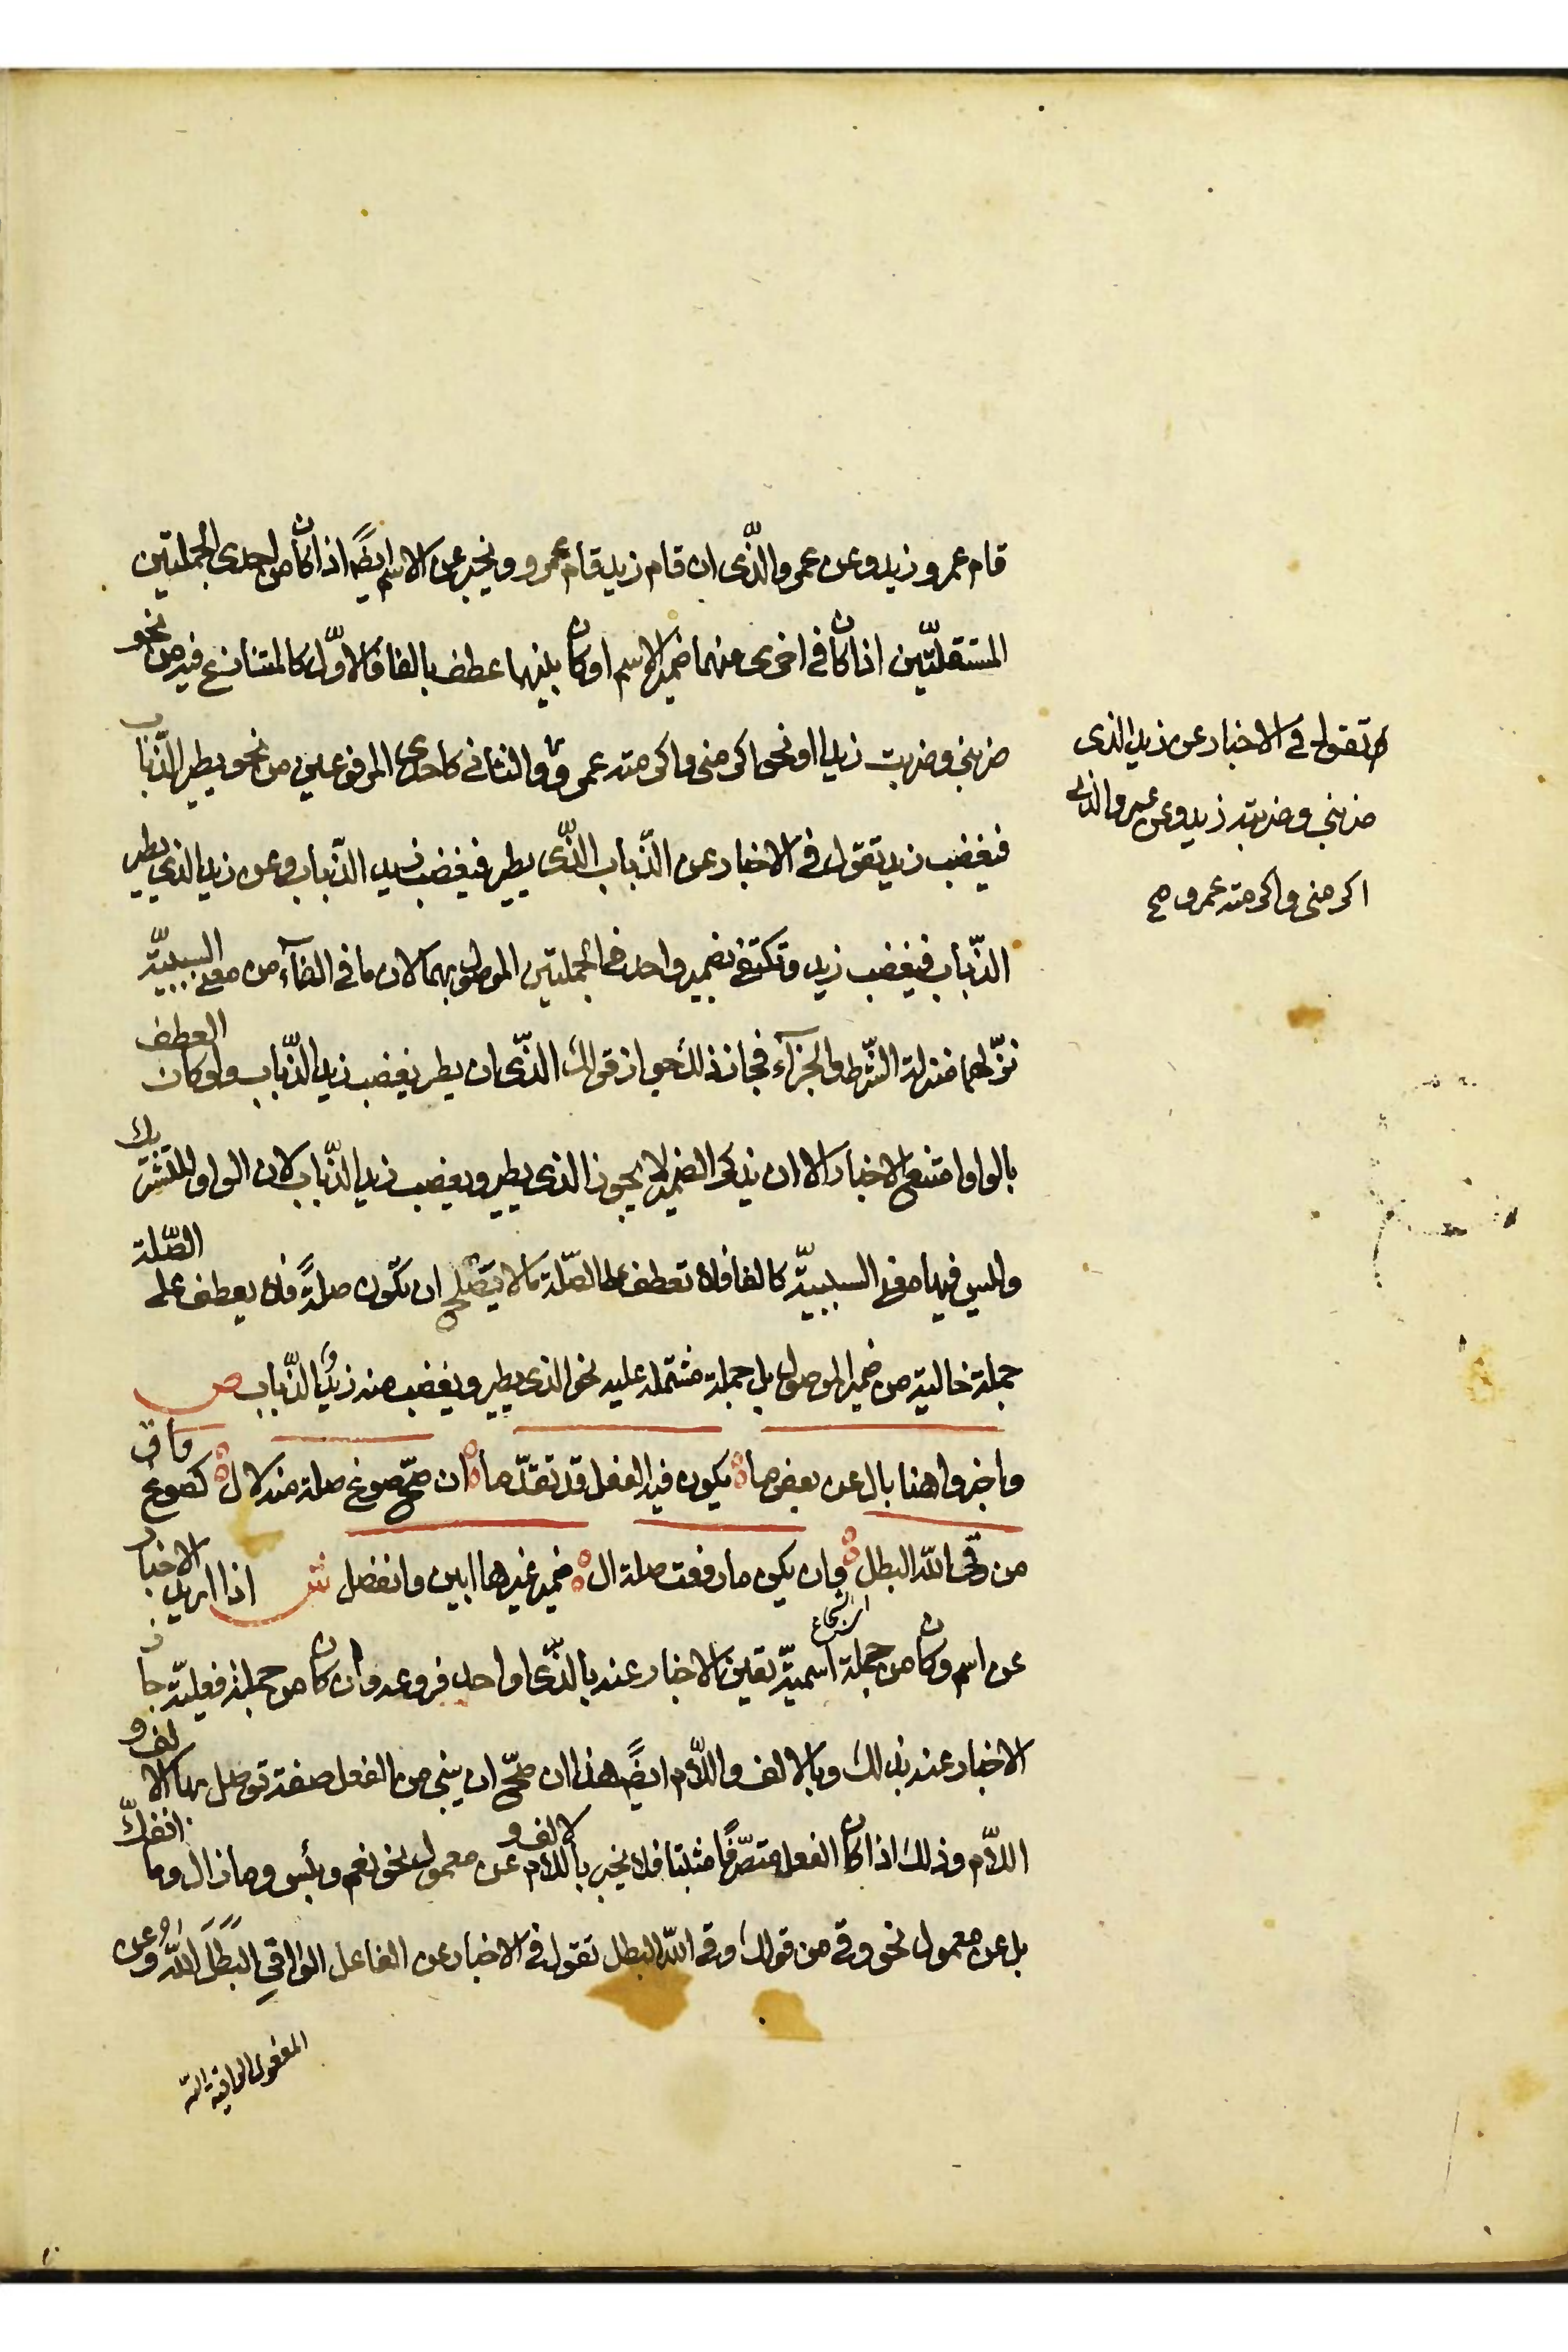 قام عمرو زيد وعن عمرو الذّى ان قام زيد قام عمرو ويخبر عن الاسم ايضًا اذا كان من احدى الجملتين
المستقلّتين اذا كان فى اخرى منهما ضمير الاسم او كان بينهما عطف بالفا فالاوّل كالمتنازع فيه من نحو
ضربنى وضربت زيدا او نحو اكرمنى واكرمته عمرو والثانى كاحدى المرفوعين من نحو يطير الذّباب
فيغضب زيد تقول فى الاخبار عن الذّباب الذّى يطير فيغضب زيد الذّباب وعن زيد الذى يطير
الذّباب فيغضب زيد وتكتفى بضمير واحد فى الجملتين الموصول بهما لان ما فى الفآء من معنى السببيّة
نزّلهما منزلة الشّرط والجزآء فجاز ذلك جواز قولك الذّى ان يطر يغضب زيد الذّباب ولو كان العطف
بالواو امتنع الاخبار الا ان يذكر الضمير لا يجوز الذى يطير ويغضب زيد الذّباب لان الواو للتشريك
وليس فيها معنى السببيّة كالفا فلا تعطف على الصّلة ما لا يصلح ان تكون صلةً فلا يعطف على الصّلة
جملة خالية من ضمير الموصول بل جملة مشتملة عليه نحو الذى يطير ويغضب منه زيدُ الذّباب ص
واخبروا هنا بال عن بعض ما يكون فيه الفعل قد تقدّما ان صحّ صوغ صلة منه لال كصوغ واق
من وقى الله البطل وان يكن ما رفعت صلة ال ضمير غيرها ابين وانفصل ش اذا اريد الاخبار
عن اسم وكان من جملة اسميّة تعين الاخبار عنه بالذّى او احد فروعه وان كان من جملة فعليّة جاز
الاخبار عنه بذلك وبالالف واللّام ايضًا هذا ان صحّ ان يبنى من الفعل صفة توصل بها الالف و
اللّام وذلك اذا كان الفعل متصرّفًا مثبتا فلا يخبر بالالف واللام عن معمول نحو نعم وبئس وما زال وما انفكّ
بل عن معمول نحو وقى من قولك وقى الله البطل تقول فى الاخبار عن الفاعل الواقِى البَطَلَ اللهُ وعن
المفعول الواقيه الله
تقول فى الاخبار عن زيد الذى
ضربنى وضربته زيد وعن عمرو الذى
اكرمنى واكرمته عمرو صح